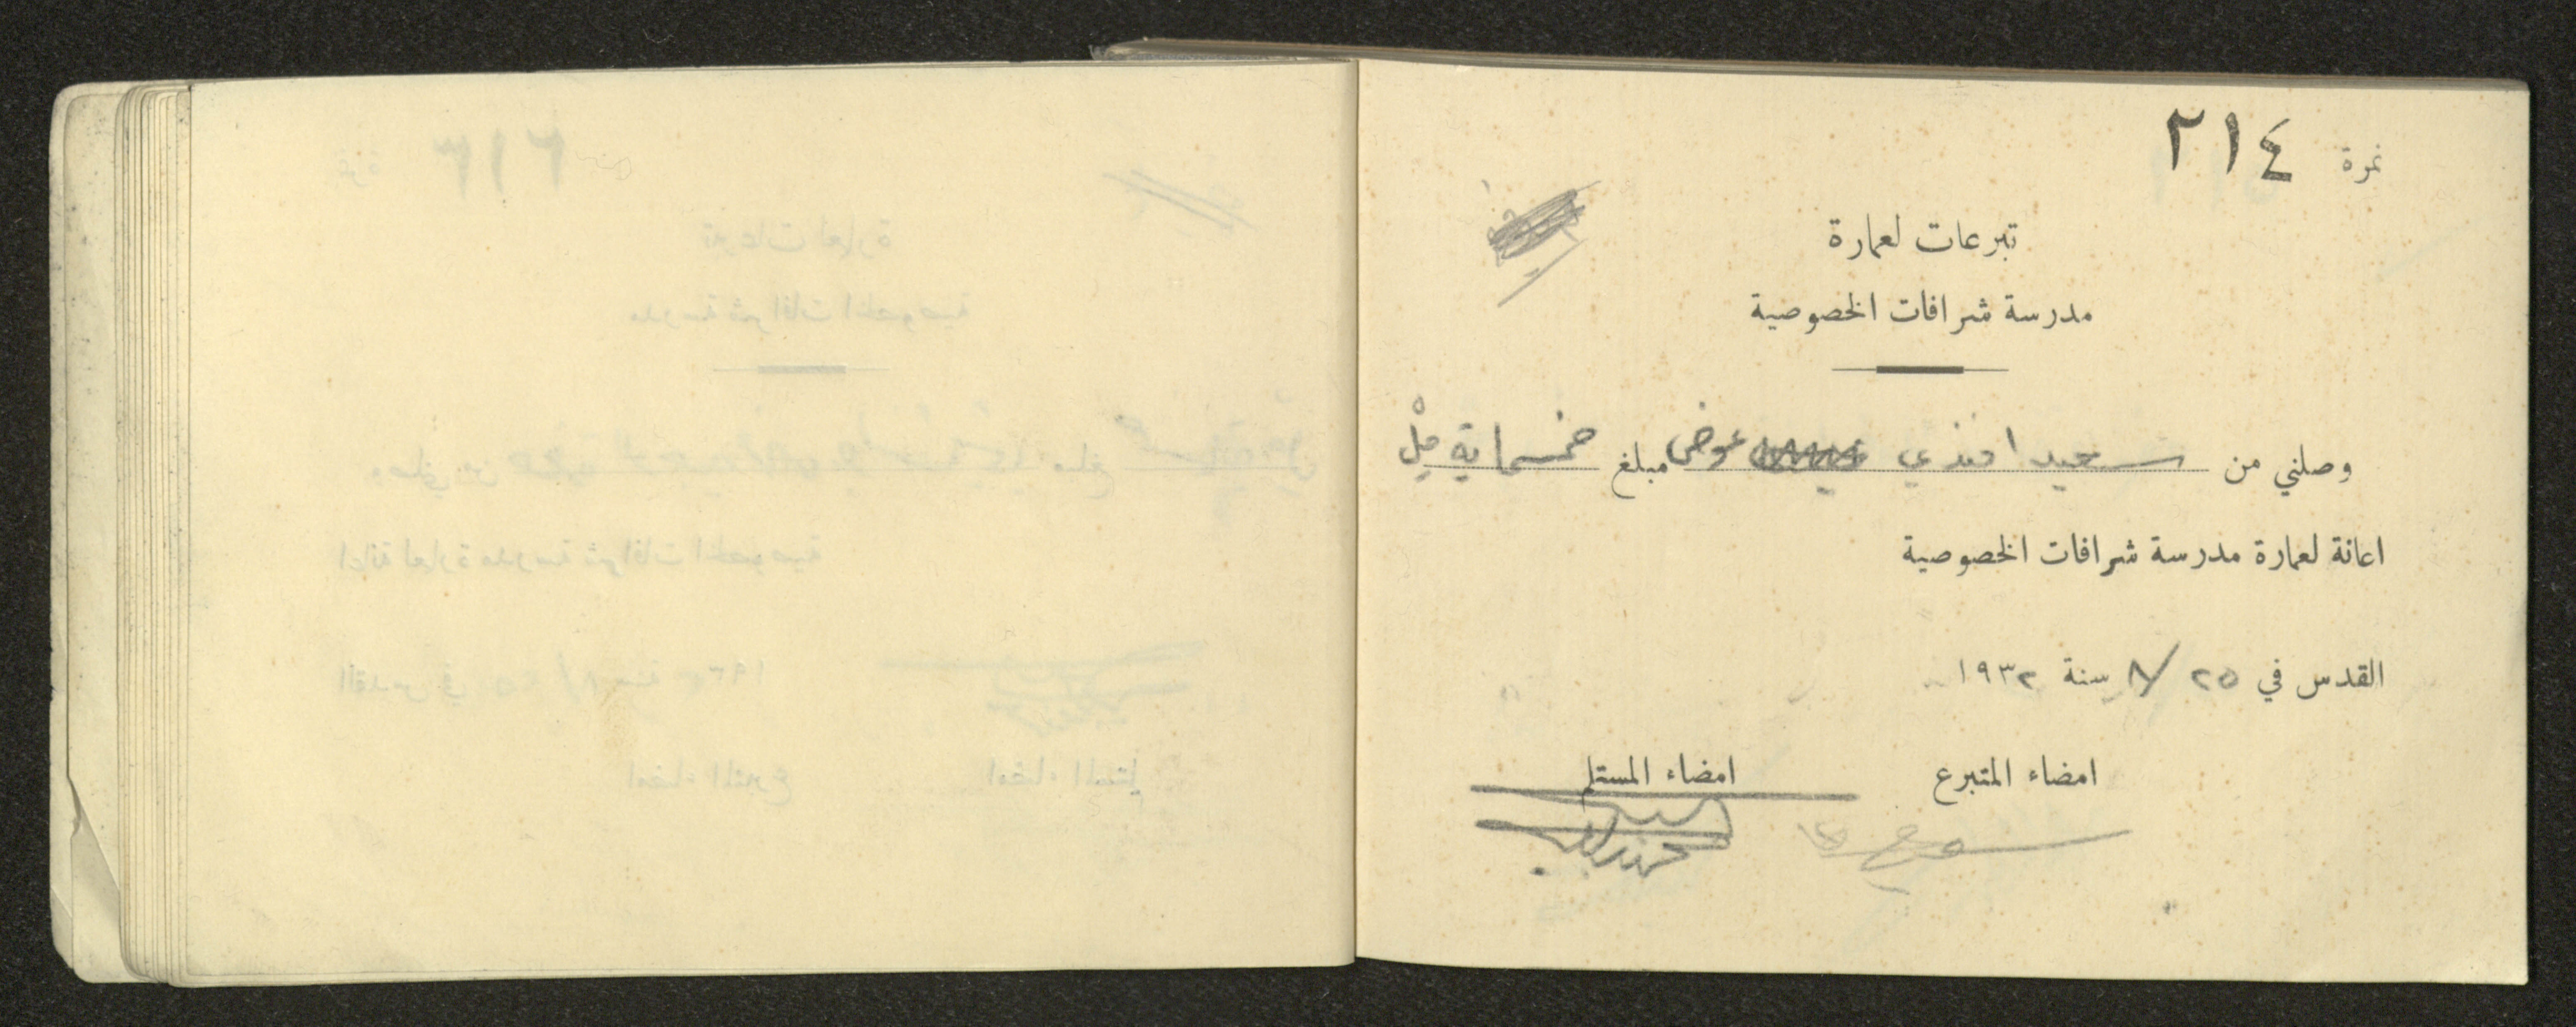 نمرة ٢١٤
تبرعات لعمارة
مدرسة شرافات الخصوصية
وصلني من سعيد افندي عوض مبلغ خمسماية مل
اعانة لعمارة مدرسة شرافات الخصوصية
القدس في ٢٥ /٨ سنة ١٩٣٢
امضاء المتبرع امضاء المستلم